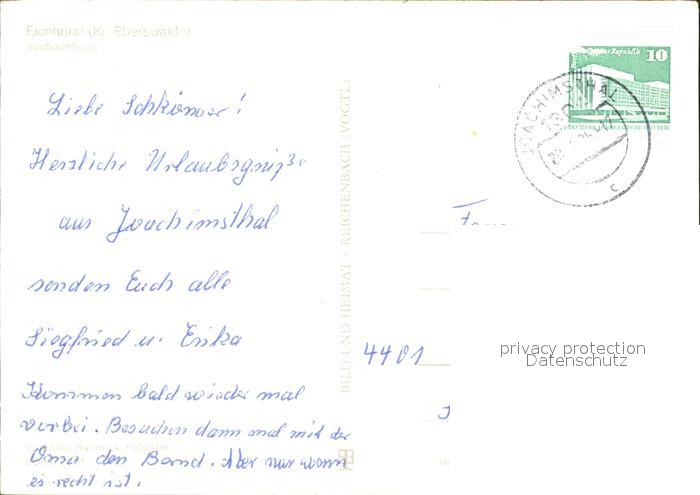 Eichhorst (Kr. Eberswalde)
Bootsschleuse
Liebe Schkönser!
Herzliche Urlaubsgrüße
aus Joachimsthal
senden Euch alle
Siegfried u. Erika
Kommen bald wieder mal
vorbei. Besuchen dann mal mit der
Oma den Bernd. Aber nur wann
es recht ist.
BILD UND HEIMAT · REICHENBACH (VOGTL)
Deutsche Demokratische Republik 10
JOACHIMSTHAL
C
Fam
4401
privacy protection
Datenschutz